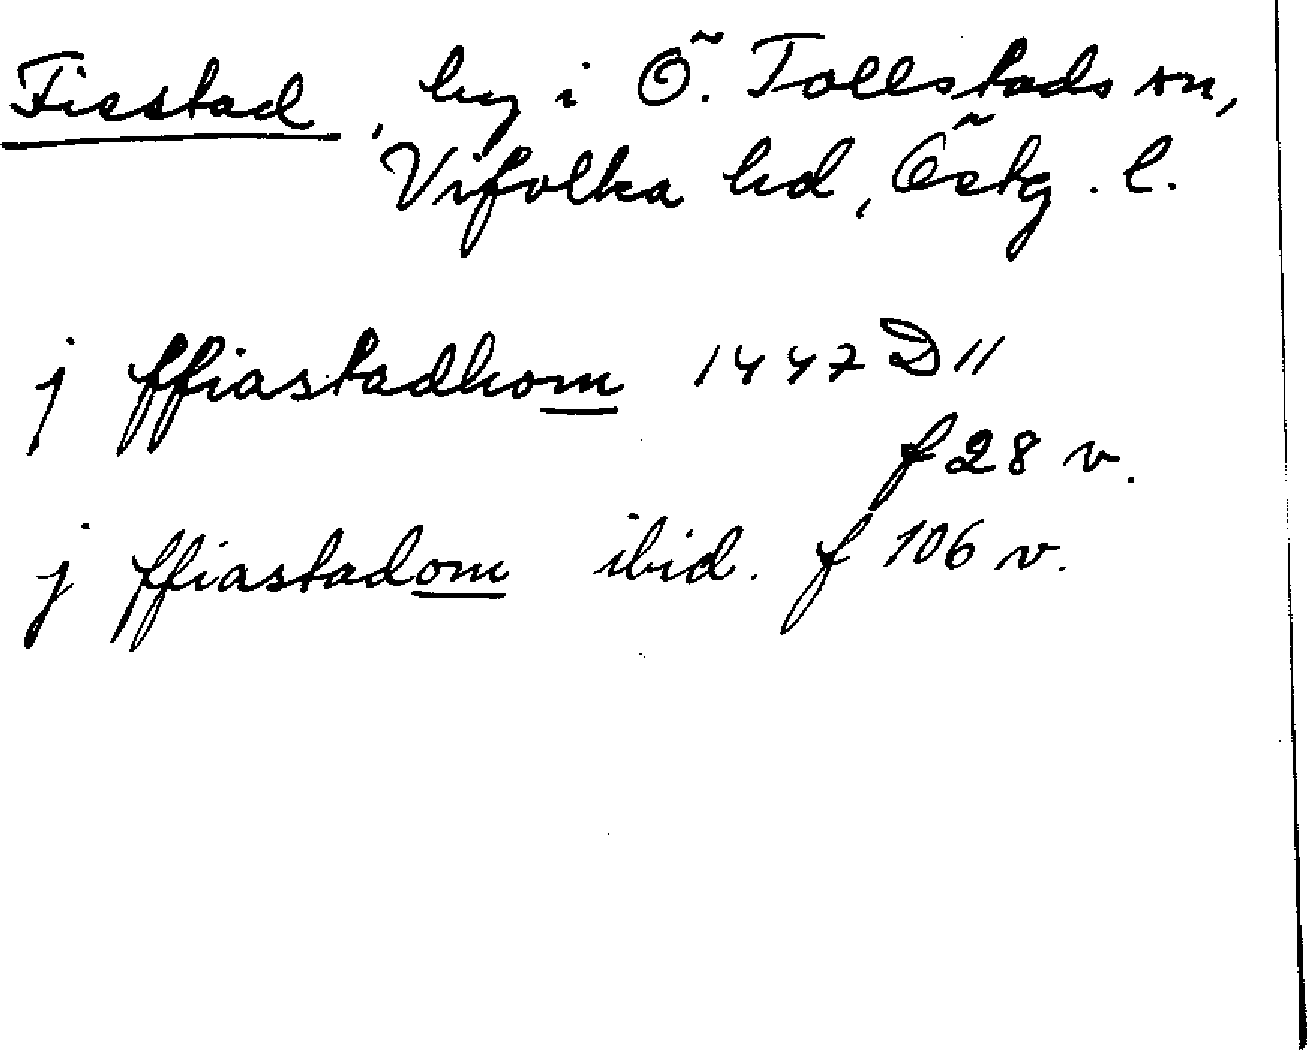 Fiestad, by i Ö. Tollstads sn,
Vifolka hd, Östg. l.
j ffiastadhom 1447 D 11
f 28 v.
j ffiastadom ibid. f 106 v.